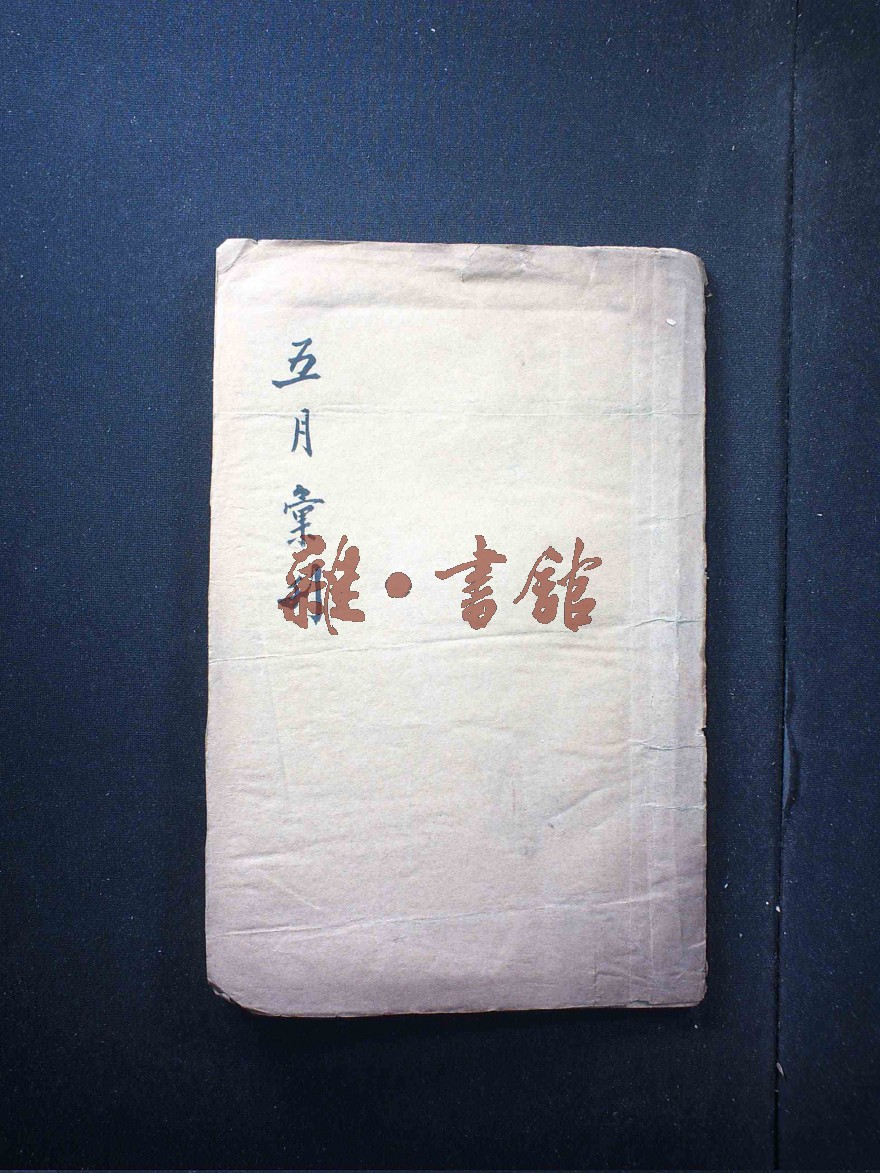 五月彙刊
雜·書館